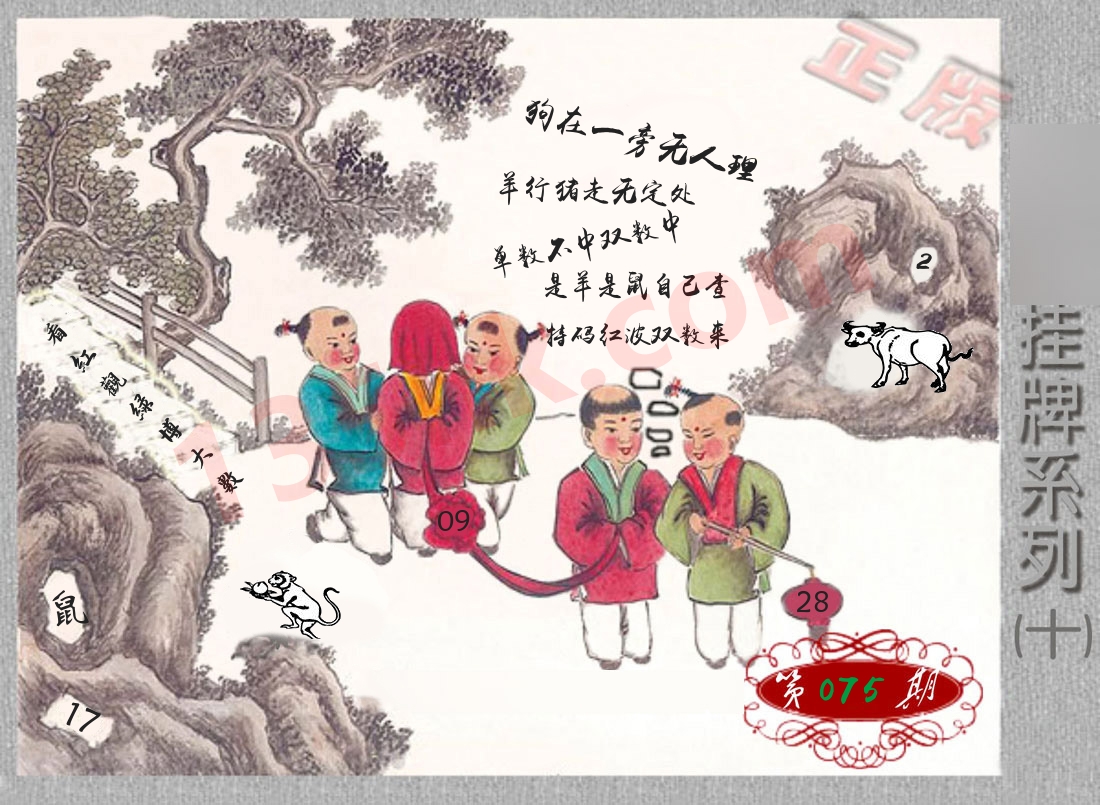 正版
狗在一旁无人理
羊行猪走无定处
单数不中双数中
是羊是鼠自己查
特码红波双数来
2
看红觀绿博大數
口
口口
品
09
28
鼠
17
第075期
挂牌系列(十)